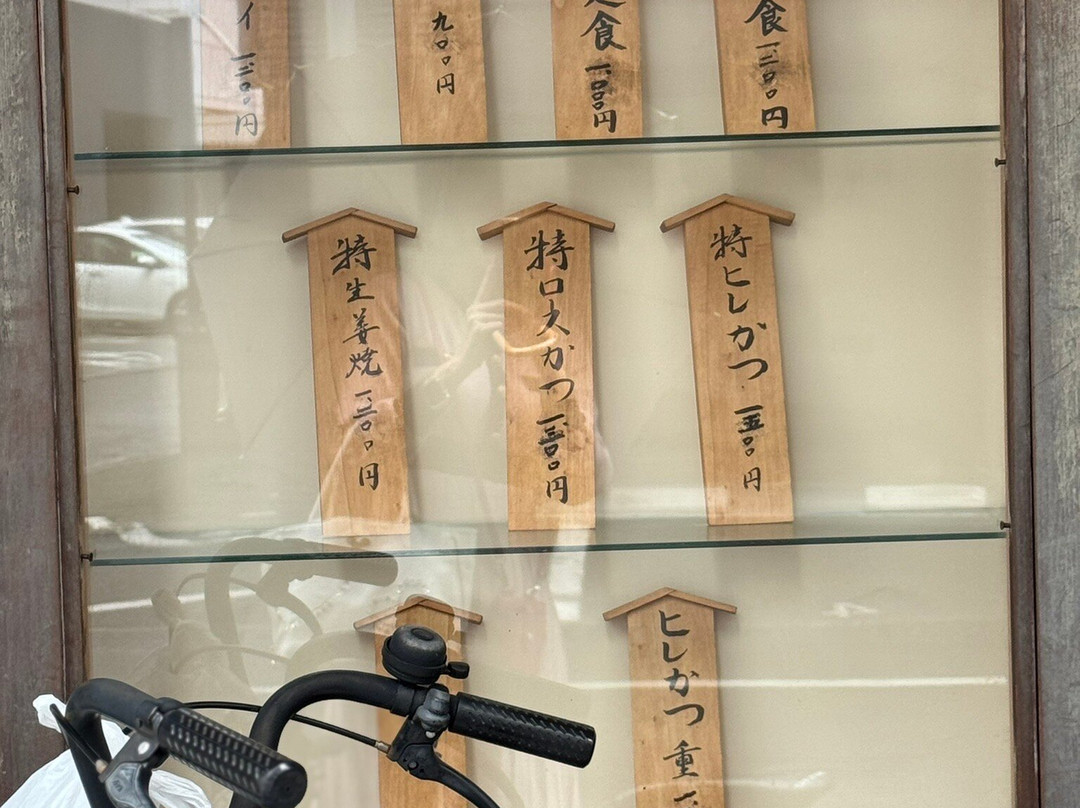 食 一二〇〇円
食 一、一〇〇円
九〇〇円
イ 一三〇〇円
特ヒレかつ 一五〇〇円
特ロースかつ 一三〇〇円
特生姜焼 一三〇〇円
ヒレかつ重